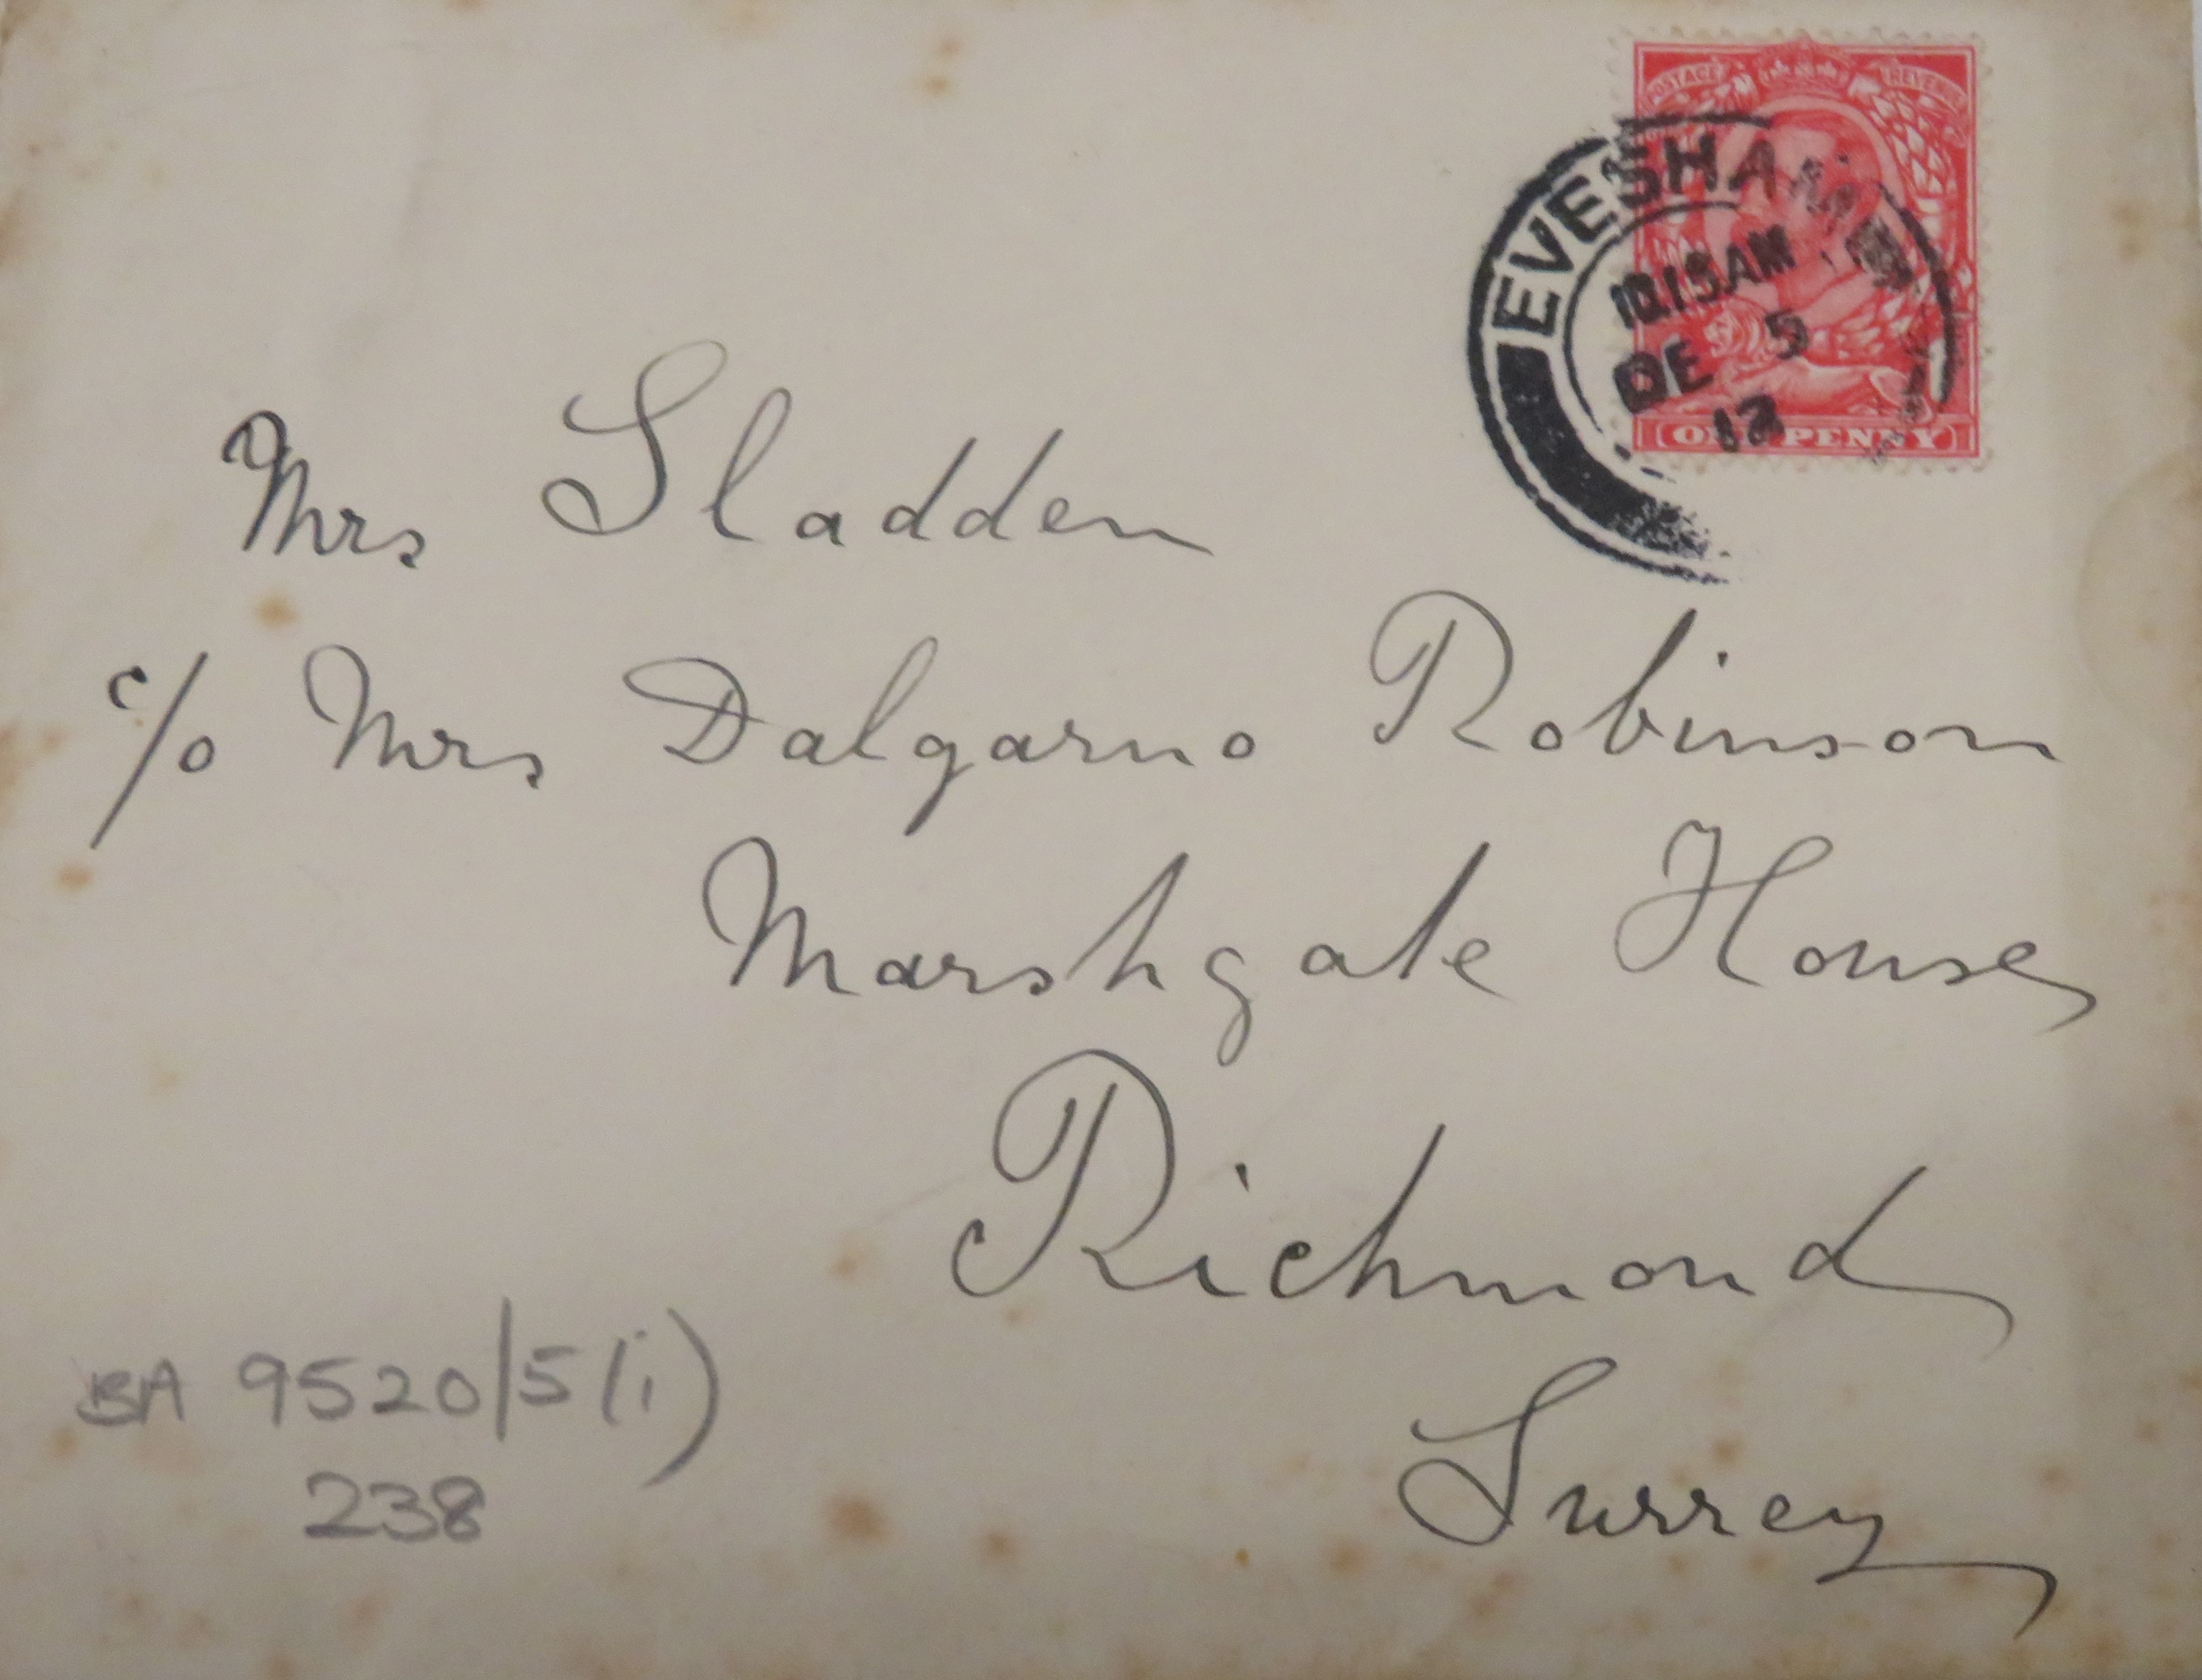 POSTAGE REVENUE
EVESHAM
DE 5
ONE PENNY
Mrs Sladden
c/o Mrs Dalgarno Robinson
Marshgate House
Richmond
Surrey
BA 9520/5(i)
238